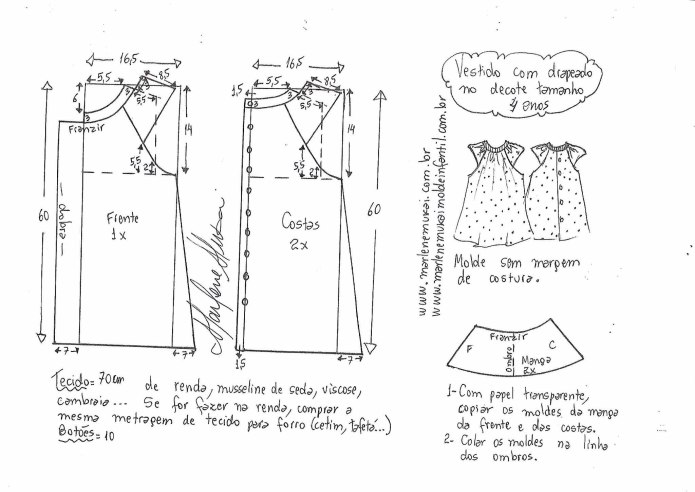 16,5
5,5
8,5
3
3
6
5,5
Franzir
14
5,5
2
60
dobra
Frente
1x
7
7
16,5
1,5
5,5
8,5
3
3
5,5
14
5,5
2
60
Costas
2x
1,5
7
Marlene Mukai
www.marlenemukai.com.br
www.marlenemukaimoldeinfantil.com.br
Vestido com drapeado
no decote tamanho
4 anos
Molde sem margem
de costura.
Franzir
F
Ombro
C
Manga
2x
1- Com papel transparente,
copiar os moldes da manga
da frente e das costas.
2- Colar os moldes na linha
dos ombros.
Tecido = 70cm de renda, musseline de seda, viscose,
cambraia... Se for fazer na renda, comprar a
mesma metragem de tecido para forro (cetim, tafetá...)
Botões = 10